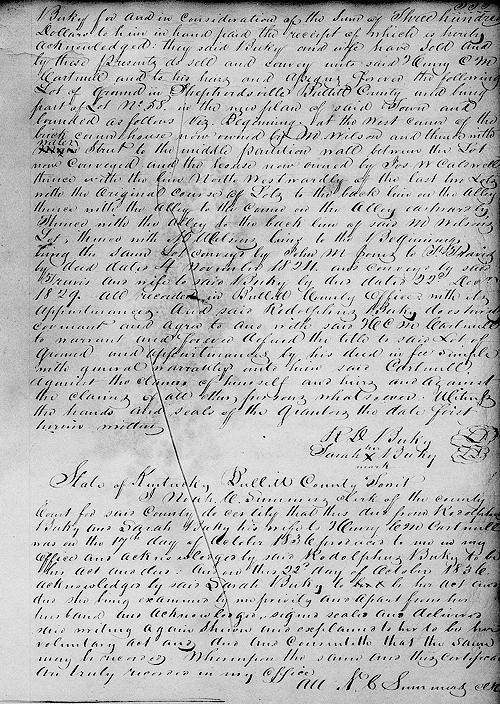 Buky for and in consideration of the sum of Three hundred
Dollars to him in hand paid the receipt of which is hereby
acknowledged they said Buky and wife have sold and
by these presents do sell and convey unto said Henry C M
Cartmell and to his heirs and assigns forever the following
Lot of ground in Shepherdsville Bullitt County and being
part of Lot No 58. in the new plan of said Town and
bounded as follows Viz. Beginning at the west corner of the
brick house now owned by M. Wilson and thence with
water
Street to the middle partition wall between the Lot
now Conveyed and the house now owned by Jas W
thence with the line North Westwardly of the last two Lots
with the Original Course of Lots to the back line on the Alley
thence with the Alley to the Corner on the Alley eastwardly
thence with the Alley to the back line of said M Wilsons
Lot, thence with Wilsons line to the Beginning
being the same Lot conveyed by John M to
by deed dated 4 November 1824. and conveyed by said
Travis and wife to said Buky by deed dated 22d
1829. All recorded in Bullitt County Office with its
appurtenances And said Rodolphus Buky does hereby
covenant and agree to and with said H C M Cartmell
to warrant and forever defend the title to said Lot of
Ground and appurtenances by his deed in fee simple
with general warranty unto him said Cartmell
against the claims of himself and heirs and against
the claims of all other persons whatsoever. Witness
the hands and seals of the Grantors the date first
herein written
R D Buky
her
Sarah X Buky
mark
State of Kentucky Bullitt County Towit
I Noah C. Summers Clerk of the county
Court for said County do certify that this deed from Rodolphus
Buky and Sarah Buky his wife to Henry C M Cartmell
was on the 17th day of October 1836 produced to me in my
office and acknowledged by said Rodolphus Buky to be
his act and deed: And on this 22d day of October 1836.
acknowledged by said Sarah Buky to be her act and
deed she being examined by me privily and apart from her
husband and acknowledged, signed sealed and delivered
said writing again shewn and explained to her to be her
voluntary act and deed and consented that the same
may be recorded Whereupon the same and this certificate
are truly recorded in my office
att N. C Summers clk